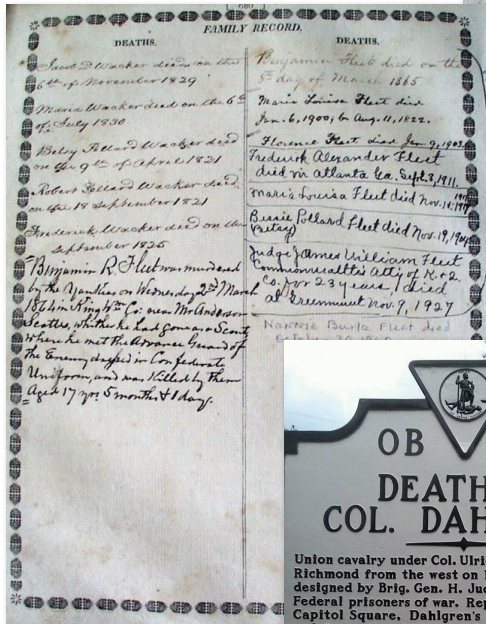 680
FAMILY RECORD.
DEATHS.
Isaac D Wacker died on the
6th of November 1829
Maria Wacker died on the 6th
of July 1830
Betsy Pollard Wacker died
on the 9th of April 1821
Robert Pollard Wacker died
on the 18 September 1821
Frederick Wacker died on the
September 1835
Benjamin R. Fleet was murdered
by the Yankees on Wednesday 2nd March
1864 in King Wm Co. near Mr Anderson
Scotts, whither he had gone as a Scout
where he met the Advance Guard of
the Enemy dressed in Confederate
Uniform, and was Killed by them
Aged 17 yrs 5 months & 1 day.
DEATHS.
Benjamin Fleet died on the
day of March 1865
Maria Louisa Fleet died
Jan. 6, 1900, b. Aug. 11, 1822.
Florence Fleet died Jan. 9, 1903.
Frederick Alexander Fleet
died in Atlanta Ga. Sept. 3, 1911.
Maria Louisa Fleet died Nov. 14, 1917
Bessie Pollard Fleet died Nov. 19, 1904
(Betsy)
Judge James William Fleet
Commonwealth's Att'y of K. & Q.
Co. for 23 years, died
at Greenmount Nov. 9, 1927
Nannie Burke Fleet died
OB
DEATH
COL. DAH
Union cavalry under Col. Ulri
Richmond from the west on
designed by Brig. Gen. H. Ju
Federal prisoners of war. Re
Capitol Square, Dahlgren's